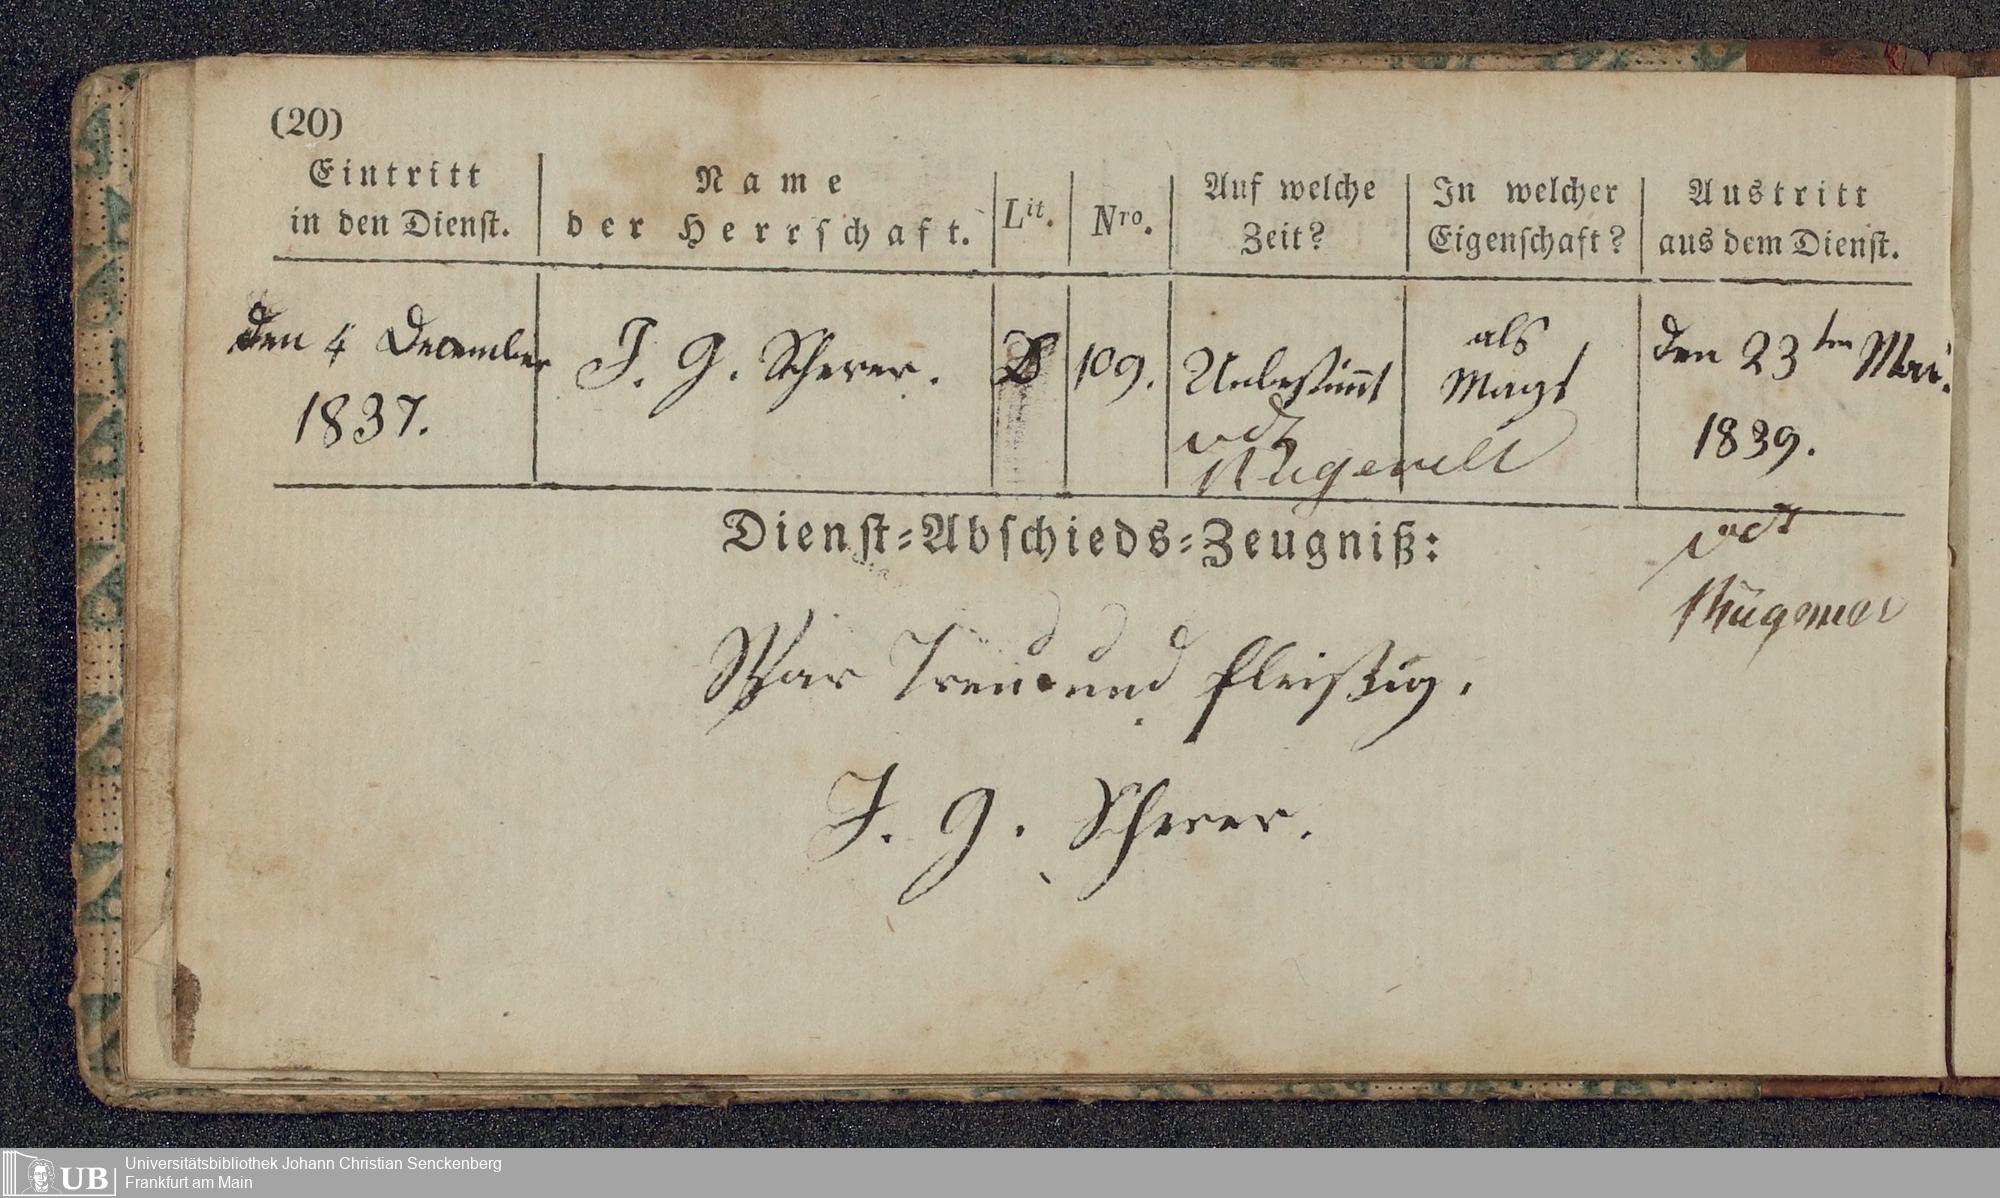 (20)
Eintritt
in den Dienst.
Name
der Herrschaft.
Lit.
Nro.
Auf welche
Zeit?
In welcher
Eigenschaft?
Austritt
aus dem Dienst.
den 4 December
1837.
J. G. Scherer.
109.
Unbestimmt
als
Magt
den 23ten Mai.
1839.
vdt
Dienst-Abschieds-Zeugniß:
vdt
War Treu und fleißig.
J. G. Scherer.
UB
Universitätsbibliothek Johann Christian Senckenberg
Frankfurt am Main